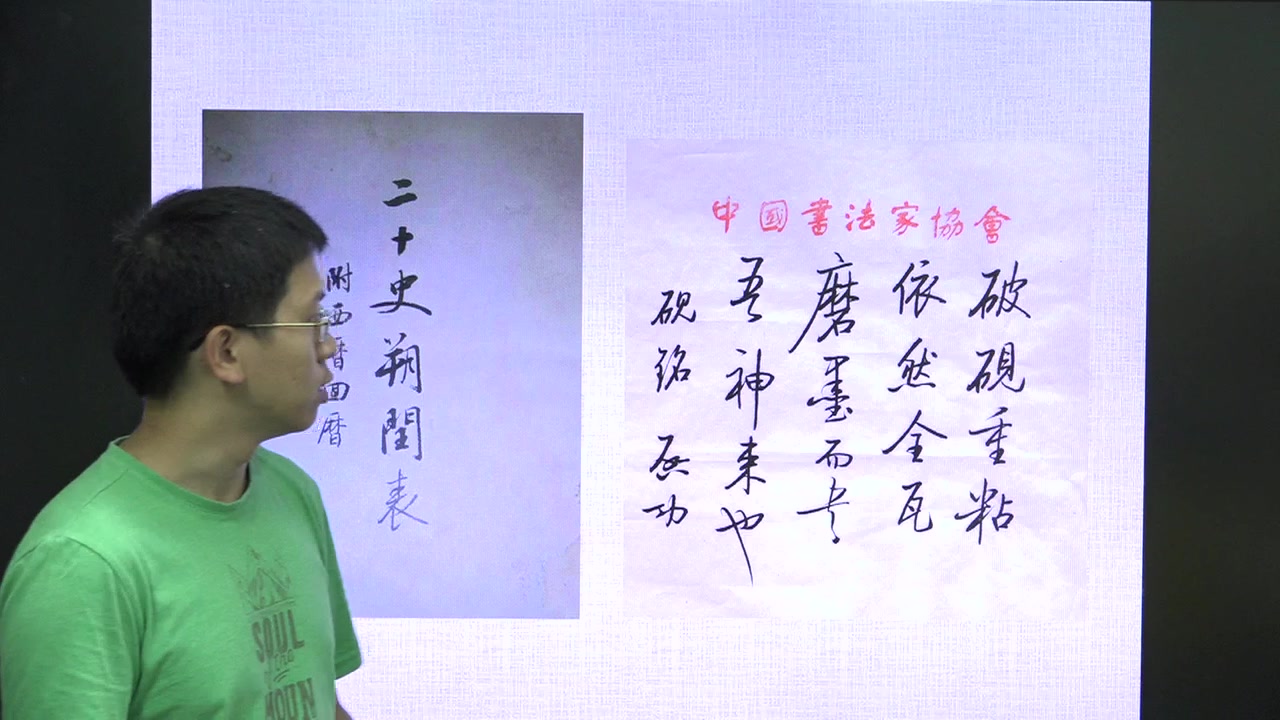 二十史朔閏表
附西暦囬暦
中國書法家協會
破硯重粘
依然全瓦
磨墨而書
吾神来也
硯銘 启功
SOUL
MOUN